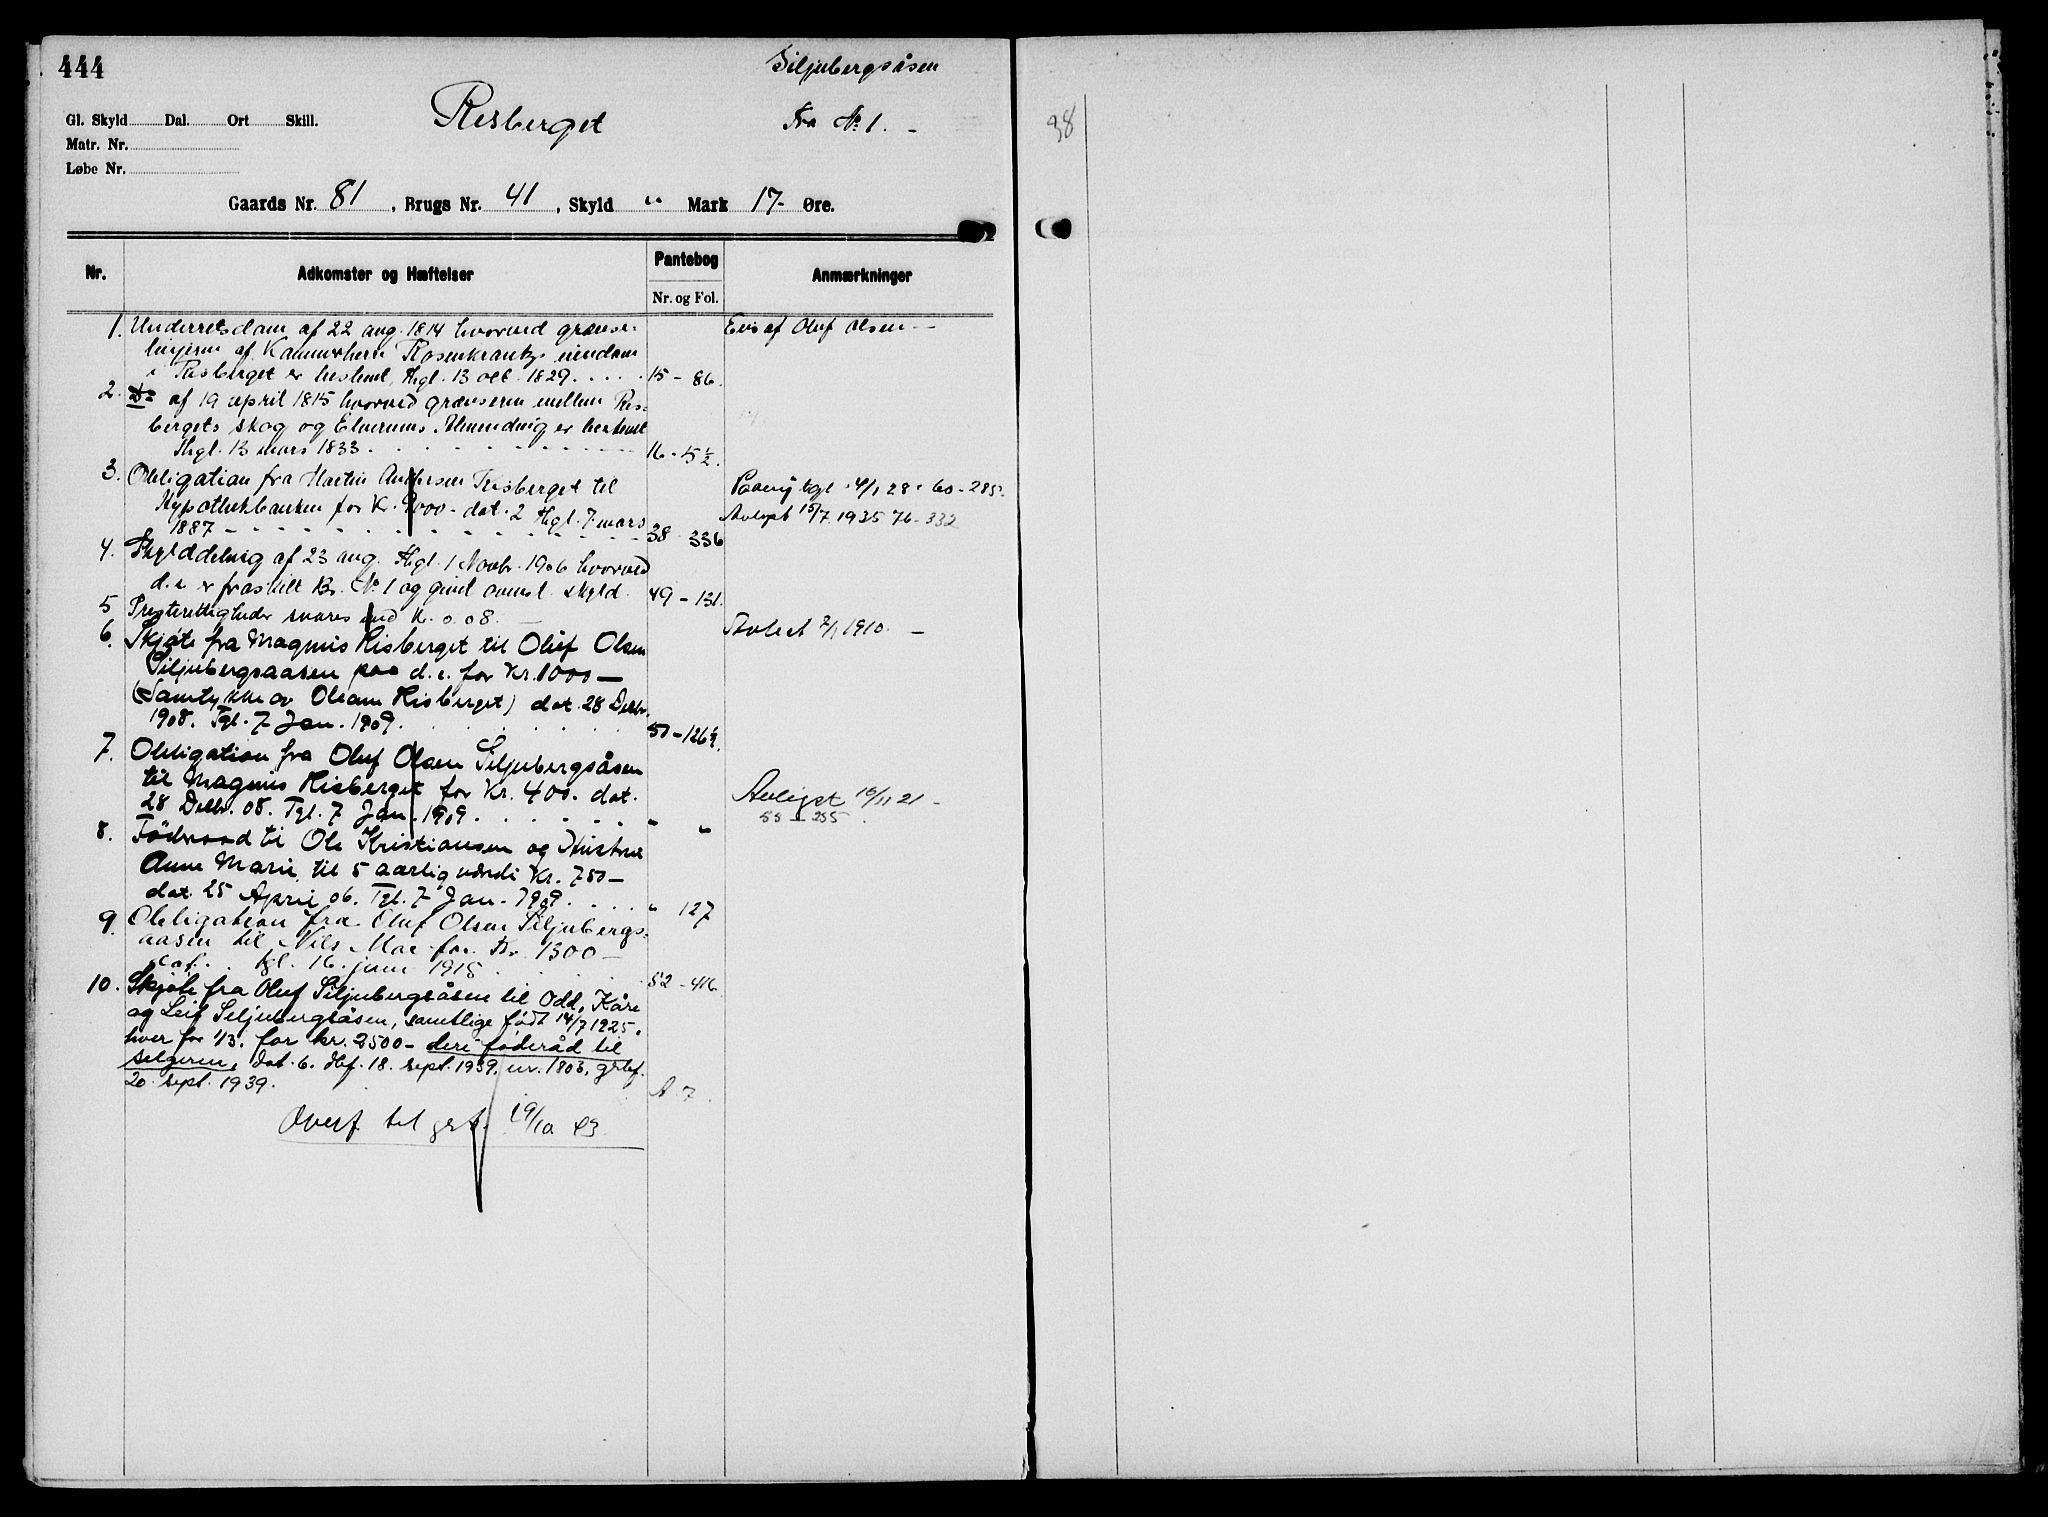 444
Siljubergsåsen
Risberget
Fra No 1. -
Gl. Skyld Dal. Ort Skill.
Matr. Nr.
Løbe Nr.
Gaards Nr. 81, Brugs Nr. 41, Skyld " Mark 17- Øre.
Nr.
Adkomster og Hæftelser
Pantebog
Nr. og Fol.
Anmærkninger
1. Underretsdom af 22 aug. 1814 hvorved grænse-
linjerne af Kammerherre Rosenkrantz eiendom
i Risberget er bestemt, thgl. 13 okt. 1829. . . . . 15 - 86.
Eies af Oluf Olsen -
2. Do af 19 april 1815 hvorved grænserne mellem Ris-
bergets skog og Elverums Almending er bestemt
Thgl. 13 mars 1833. 16 - 5½.
3. Obligation fra Martin Andersen Risberget til
Hypothekbanken for K. 9000 - dat. 2 thgl. 7 mars
1887 - 38 336
Paany tgl. 4/1 28 - 60 - 285.
Avlyst 15/7 1935 76 - 332
4. Skylddeling af 23 aug. thgl. 1 Novbr. 1906 hvorved
d. e. er fraskilt Br. No 1 og givet ovenst. skyld. 49 - 131.
5 Presterettigheder svares med K. 0.08. -
Avløst 2/1 1910. -
6. Skjøte fra Magnus Risberget til Oluf Olsen
Siljubergsaasen paa d. e. for Kr. 1000 -
(Samtykke av Oleane Risberget) dat. 28 Decbr.
1908. Tgl. 7 Jan. 1909. 50 - 126½.
7. Obligation fra Oluf Olsen Siljubergsåsen
til Magnus Risberget for Kr. 400. dat.
28 Decbr. 08. Tgl. 7 Jan. 1909. . . . . . " "
Avlyst 16/11 21 -
58 - 255
8. Föderaad til Ole Kristiansen og Hustru
Anne Marie til 5 aarlig værdi Kr. 750 -
dat. 25 April 06. Tgl. 7 Jan. 1909. . . . . " 127
9. Obligation fra Oluf Olsen Siljubergs-
aasen til Nils Moe for Kr. 1300 -
dat. . tgl. 16. juni 1915. 52 - 416.
10. Skjøte fra Oluf Siljubergsåsen til Odd, Kåre
og Leif Siljubergsåsen, samtlige født 14/7 1925.
hver for 1/3. for kr. 2500 - deri føderåd til
selgeren. Dat. 6. dbf. 18. sept. 1939. nr. 1803, grbf.
20. sept. 1939. A. 7.
Overf. til grb. 19/10 43
38